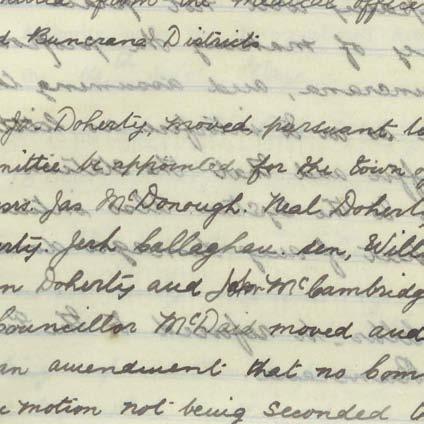 from the medical office
d Buncrana Districts
Jno. Doherty, moved, pursuant to
mittee be appointed for the town o
Jas McDonough. Neal Doherty
erty. Jerh Callaghan. sen, Will
n Doherty and John McCambridg
Councillor McDaid moved and
an amendment that no Com
motion not being seconded